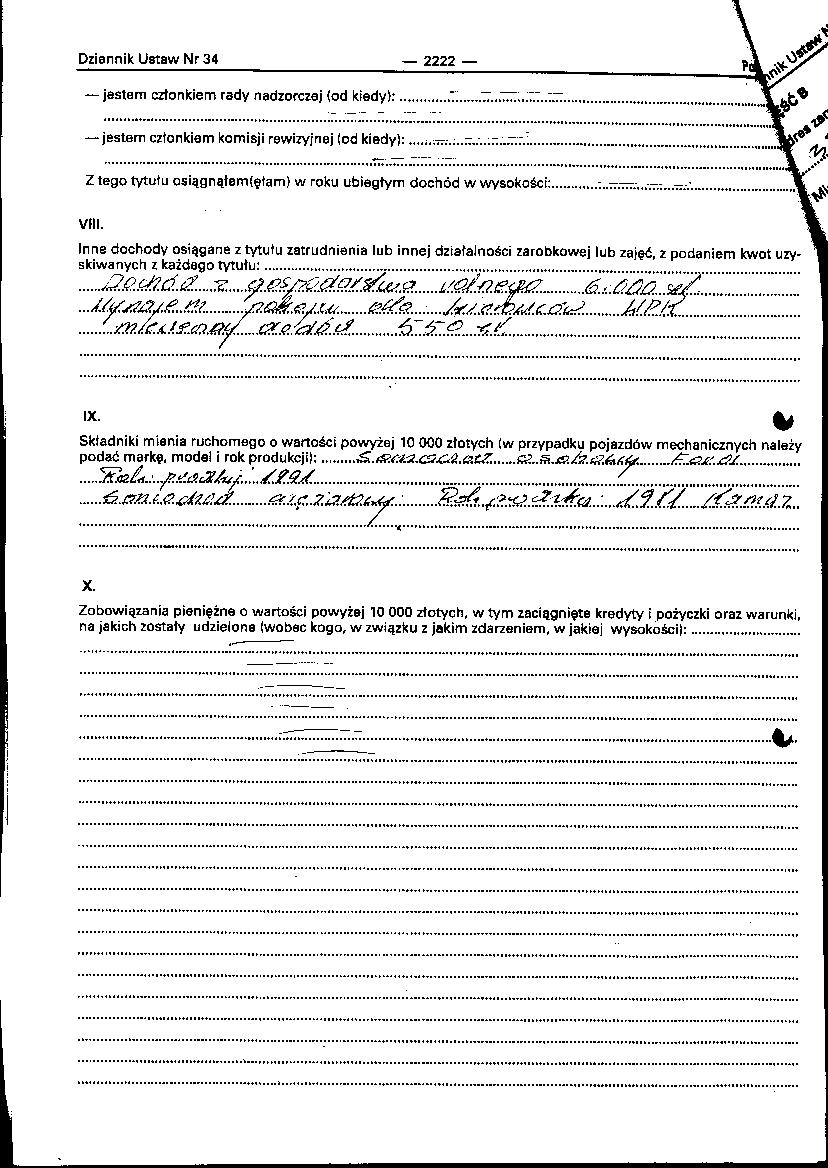 Dziennik Ustaw Nr 34 — 2222 —
— jestem członkiem rady nadzorczej (od kiedy):
— jestem członkiem komisji rewizyjnej (od kiedy):
Z tego tytułu osiągnąłem(ęłam) w roku ubiegłym dochód w wysokości:
VIII.
Inne dochody osiągane z tytułu zatrudnienia lub innej działalności zarobkowej lub zajęć, z podaniem kwot uzy-
skiwanych z każdego tytułu:
Dochód z gospodarstwa rolnego 6.000 zł
Wynajem pokoju dla kierowców WPK
miesięczny dochód 550 zł
IX.
Składniki mienia ruchomego o wartości powyżej 10 000 złotych (w przypadku pojazdów mechanicznych należy
podać markę, model i rok produkcji): Samochód osobowy Ford
Rok produkcji 1991
Samochód ciężarowy Rok produkc. 1981 Kamaz
X.
Zobowiązania pieniężne o wartości powyżej 10 000 złotych, w tym zaciągnięte kredyty i pożyczki oraz warunki,
na jakich zostały udzielone (wobec kogo, w związku z jakim zdarzeniem, w jakiej wysokości):